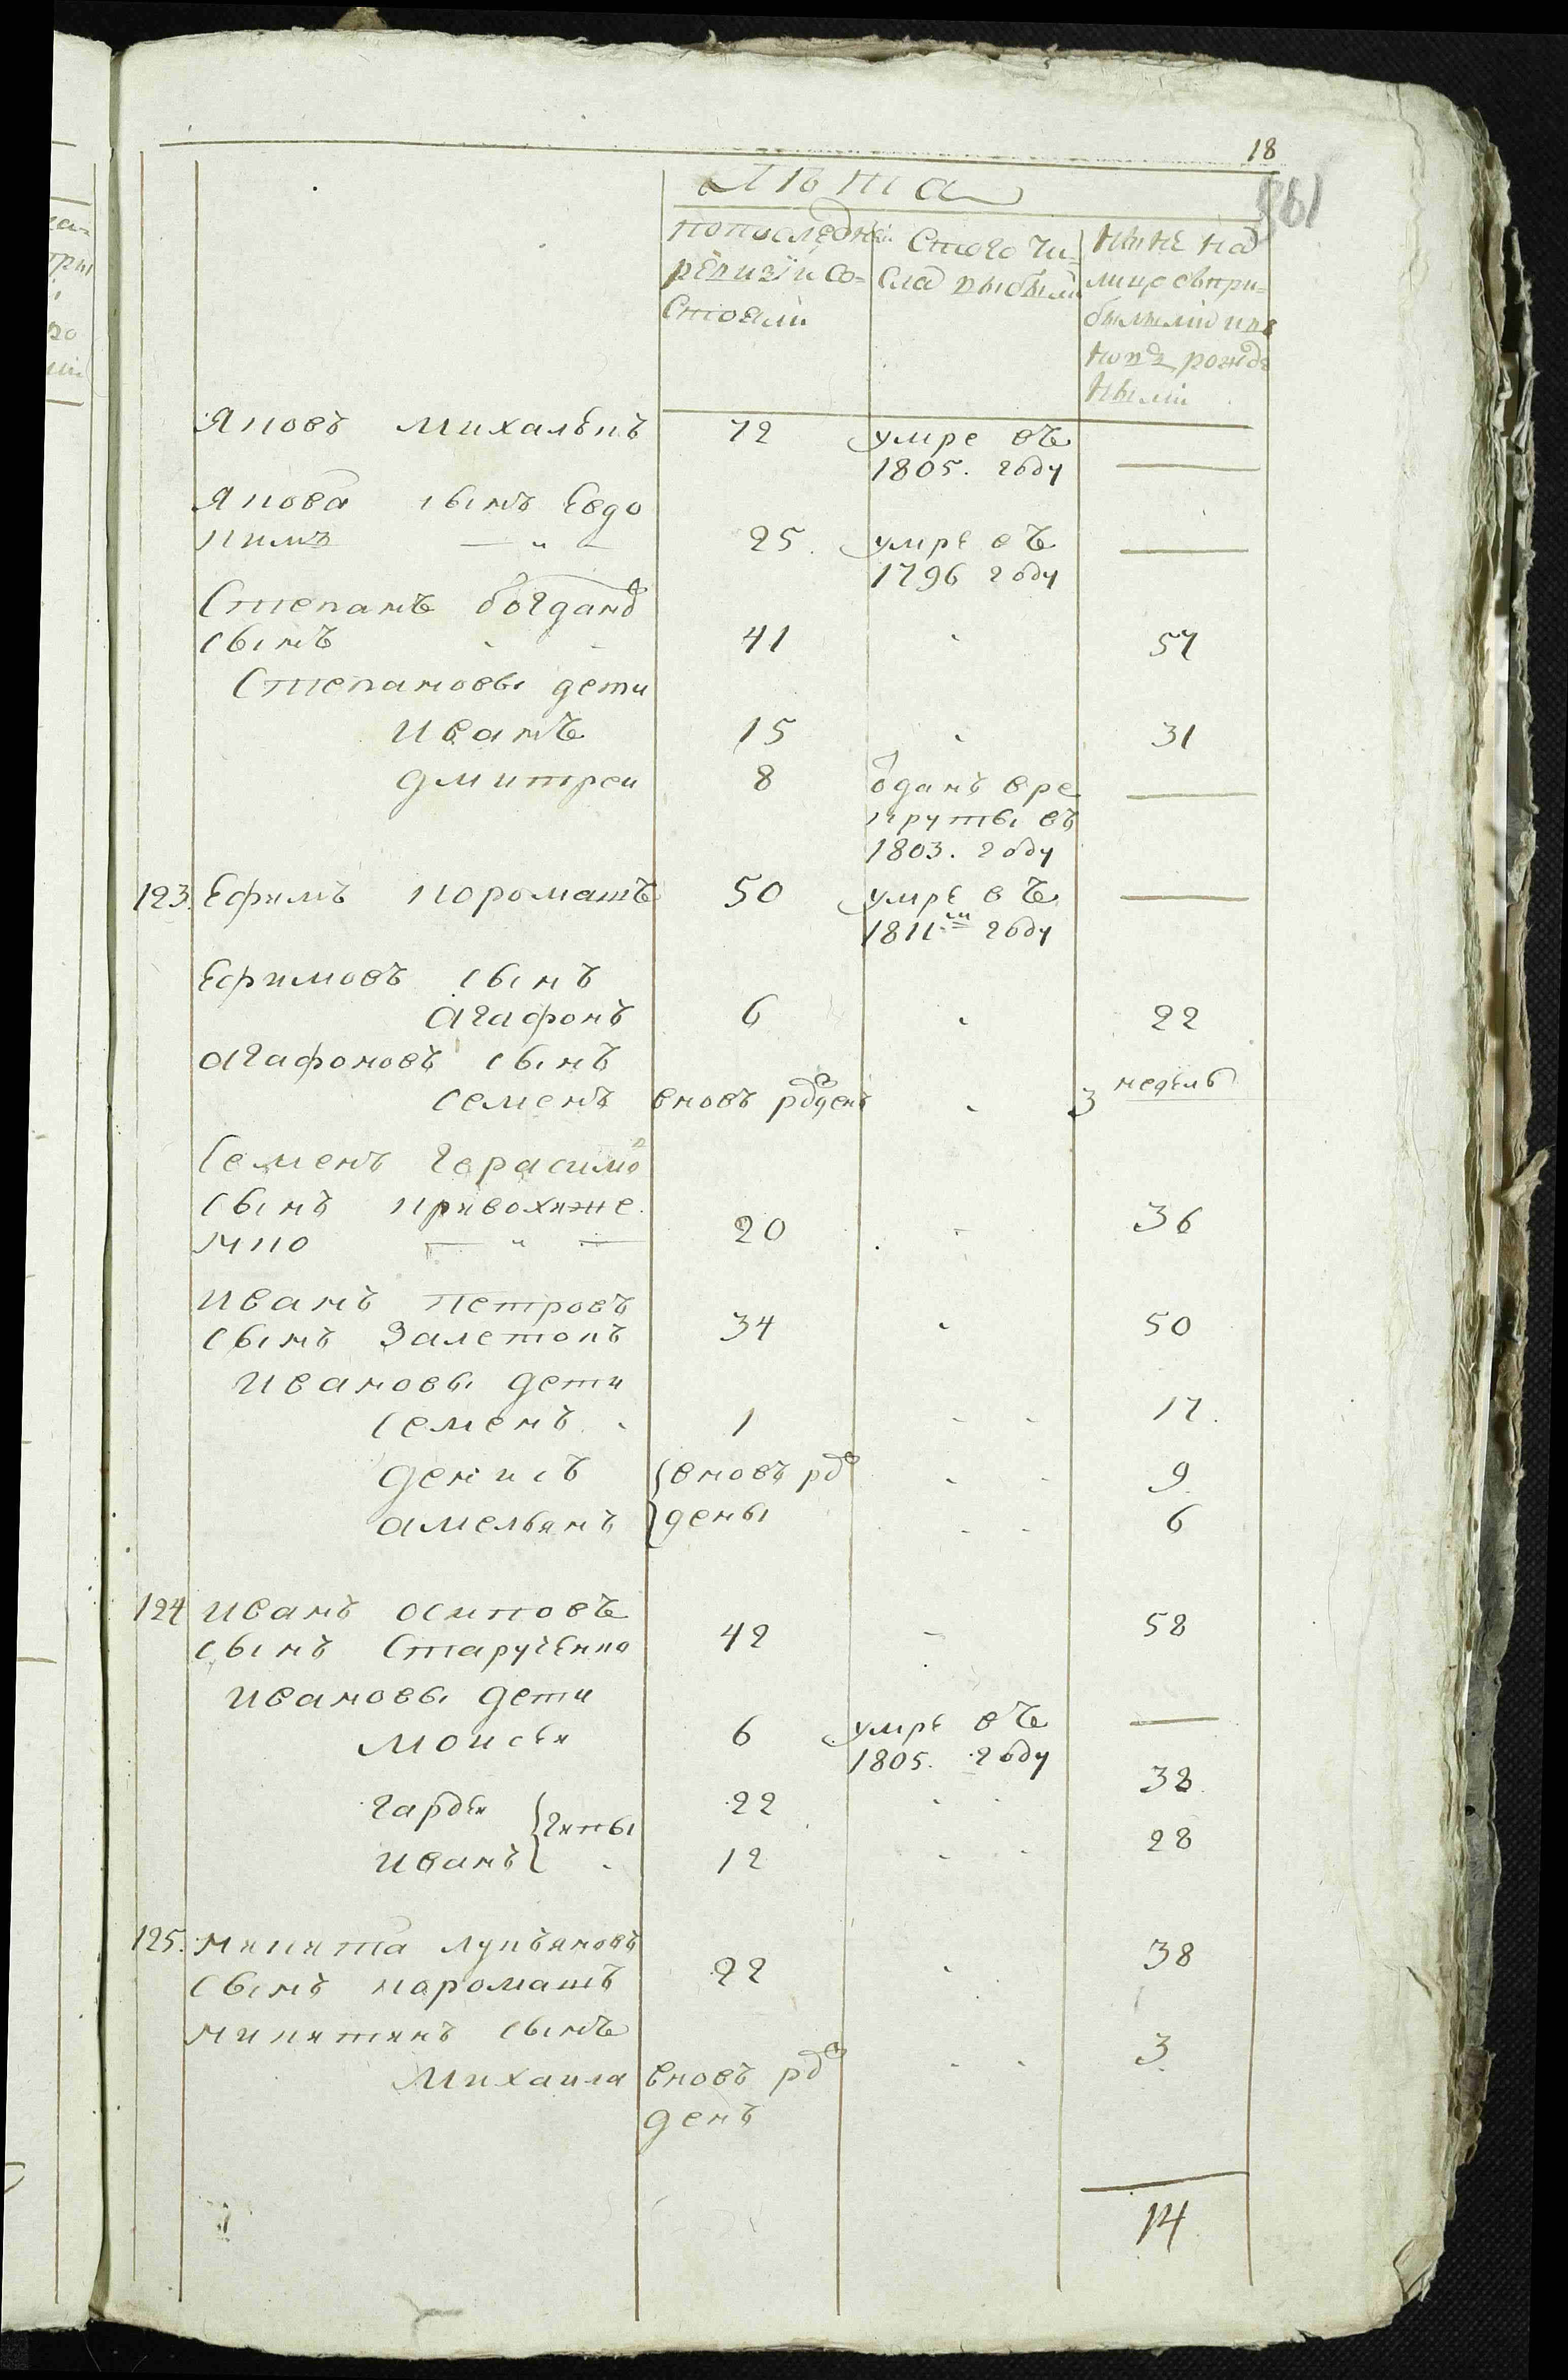 18
561
Лѣта
попоследнеі
ревизіи со=
стояли
Стого чи=
сла выбыли
Ныне на
лицо спри=
былыми и въ
новь рожде
ными
Яковъ михалѣнъ 72 умре въ
1805. году —
Якова сынъ Евдо
кимъ — „ — 25. умре въ —
1796 году
Степанъ богданов
сынъ 41 57
Степановы дети
иванъ 15 31
дмитреи 8 одань вре —
круты въ
1803. году
123. Ефимъ коромашъ 50 умре въ —
1811м году
Ефимовъ сынъ
агафонъ 6 22
агафоновъ сынъ
семенъ вновъ рожденъ 3 недель
Семенъ герасимо
сынъ кривохиже
нко — „ — 20 36
иванъ петровъ
сынъ Залетокъ 34 50
ивановы дети
семенъ 1 17.
денисъ вновъ рож 9
амельянъ дены 6
124 иванъ осиповъ
сынъ старученко 42 58
ивановы дети
моисѣи 6 умре въ —
1805. году
гардѣи 22 38
зяты
иванъ 12 28
125. микита лукъяновъ
сынъ коромашъ 22 38
микитинъ сынъ
михаила вновъ рож 3
денъ
14